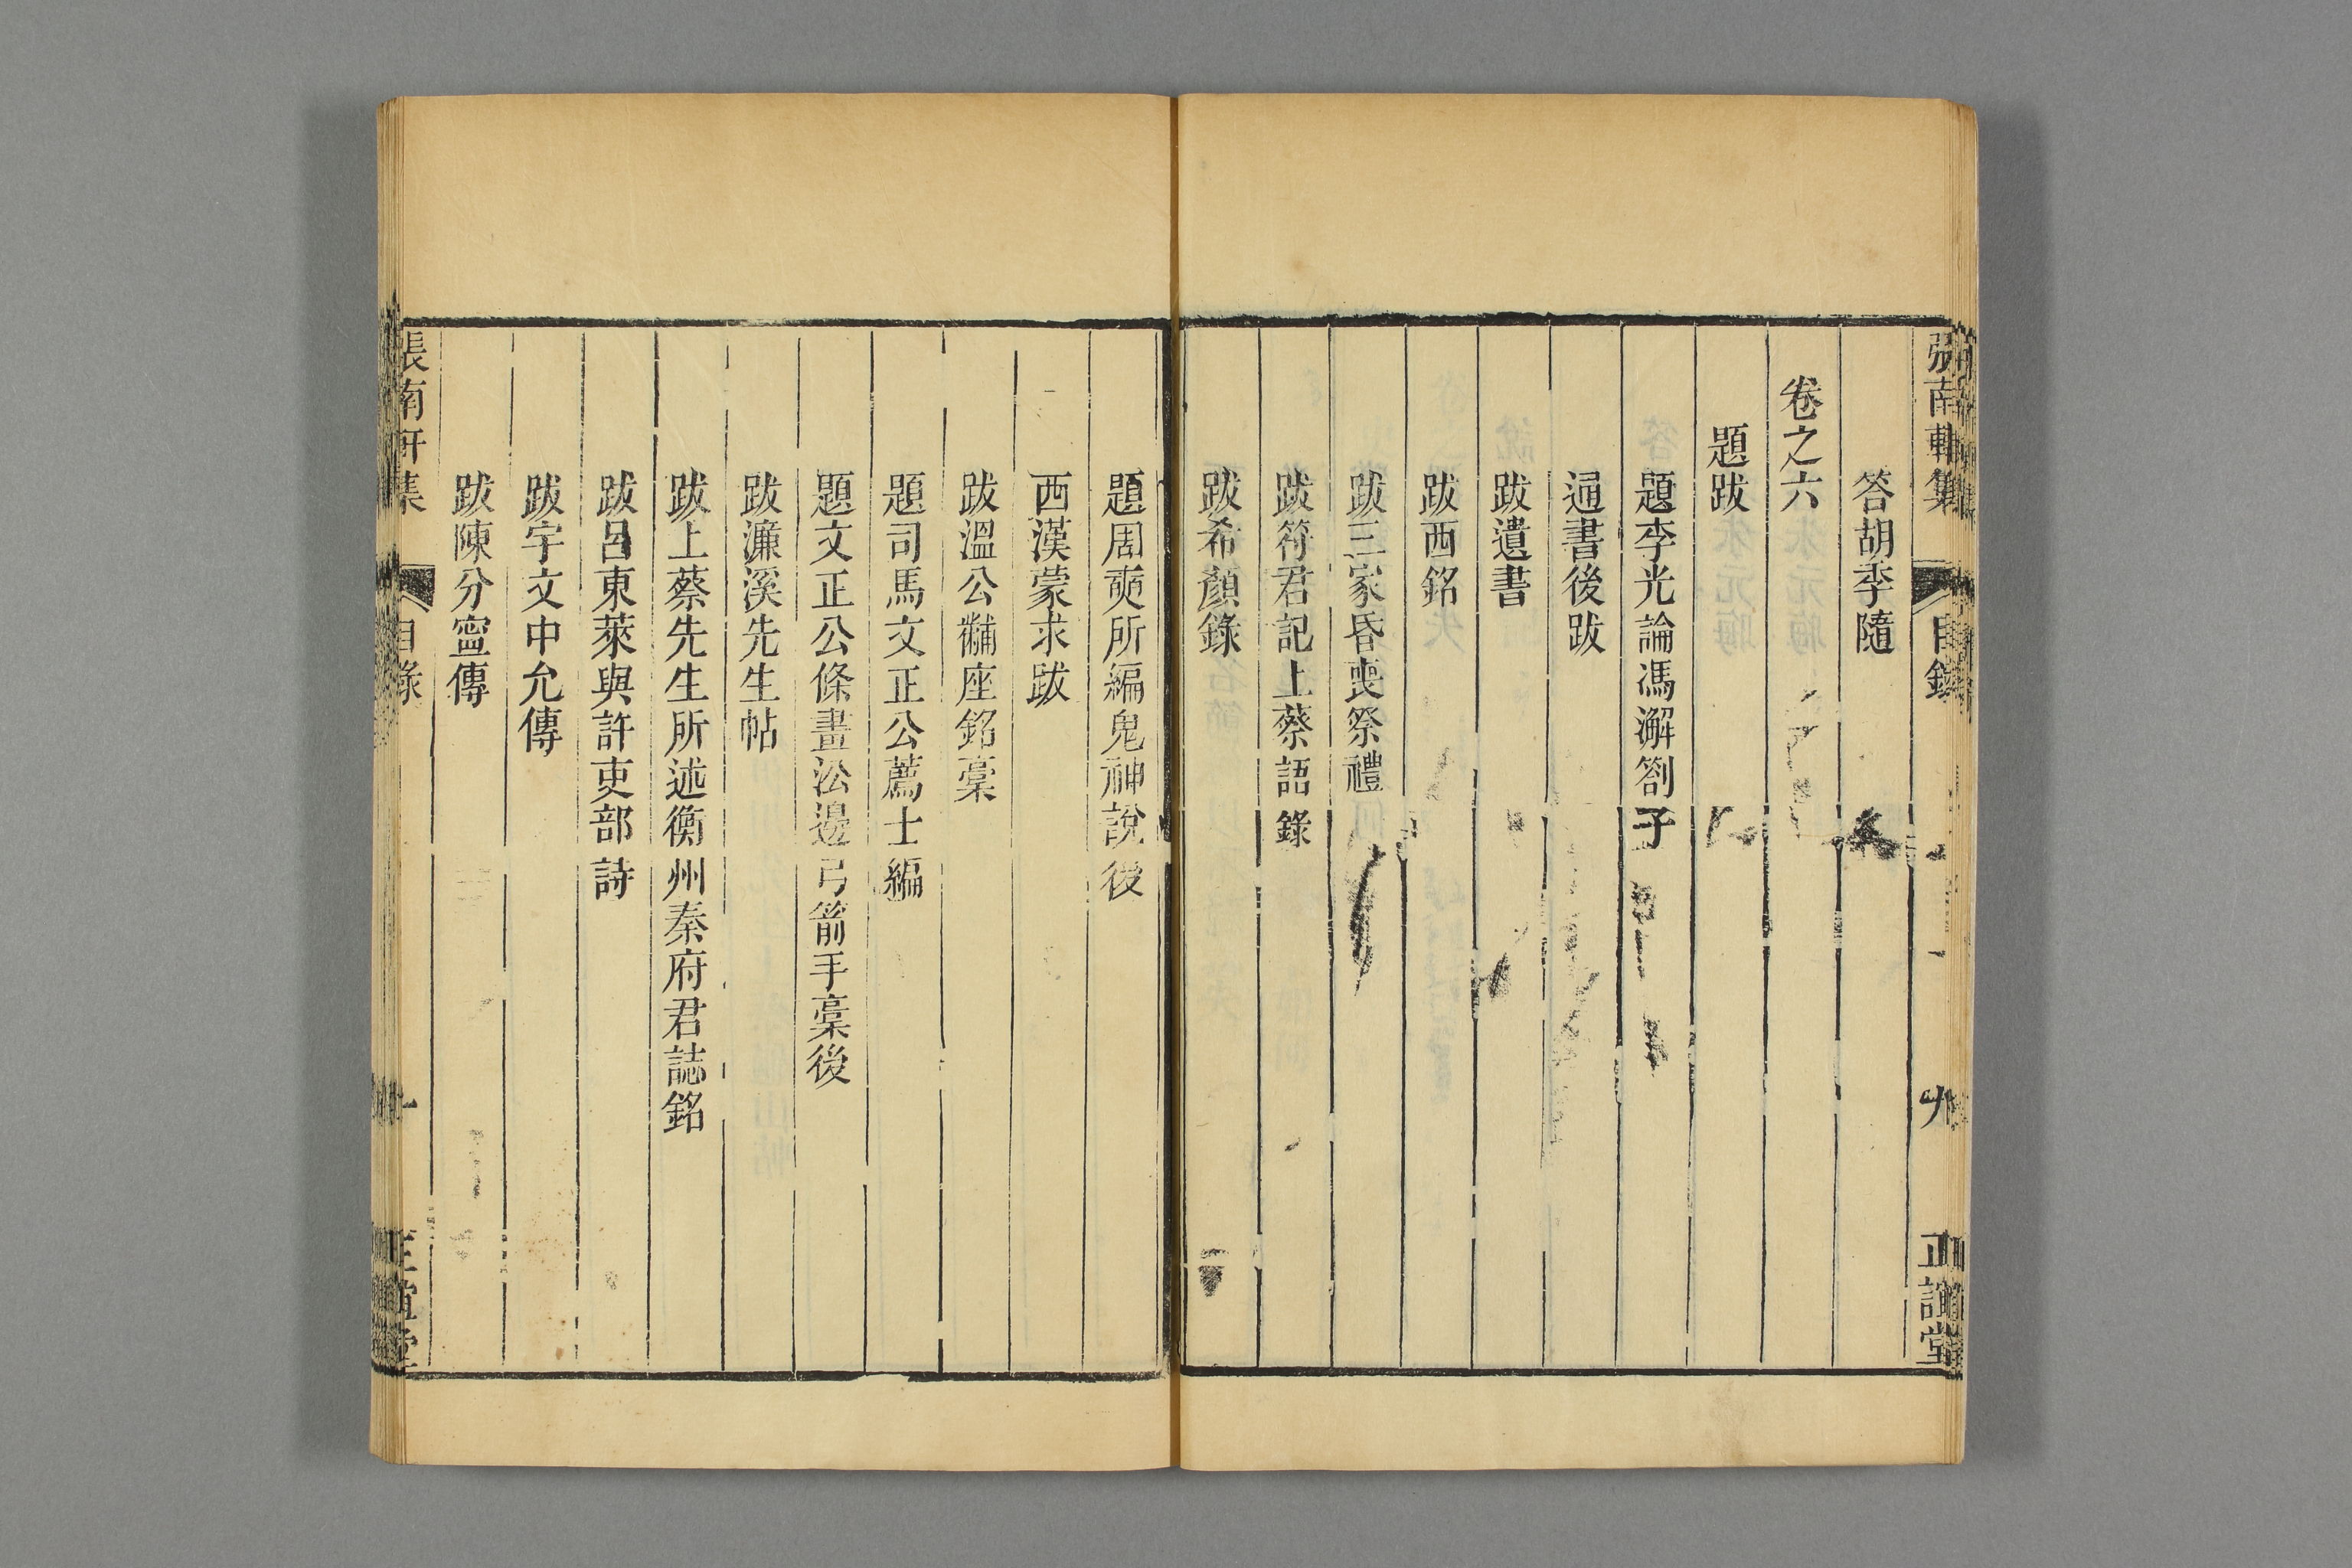 張南軒集 目錄 九 正誼堂
答胡季隨
卷之六
題跋
題李光論馮澥劄子
通書後跋
跋遺書
跋西銘
跋三家昏喪祭禮
跋符君記上蔡語錄
跋希顏錄
題周奭所編鬼神說後
西漢蒙求跋
跋溫公黼座銘稾
題司馬文正公薦士編
題文正公條畫沿邊弓箭手稾後
跋濂溪先生帖
跋上蔡先生所述衡州秦府君誌銘
跋呂東萊與許吏部詩
跋宇文中允傳
跋陳分寧傳
張南軒集 目錄 十 正誼堂